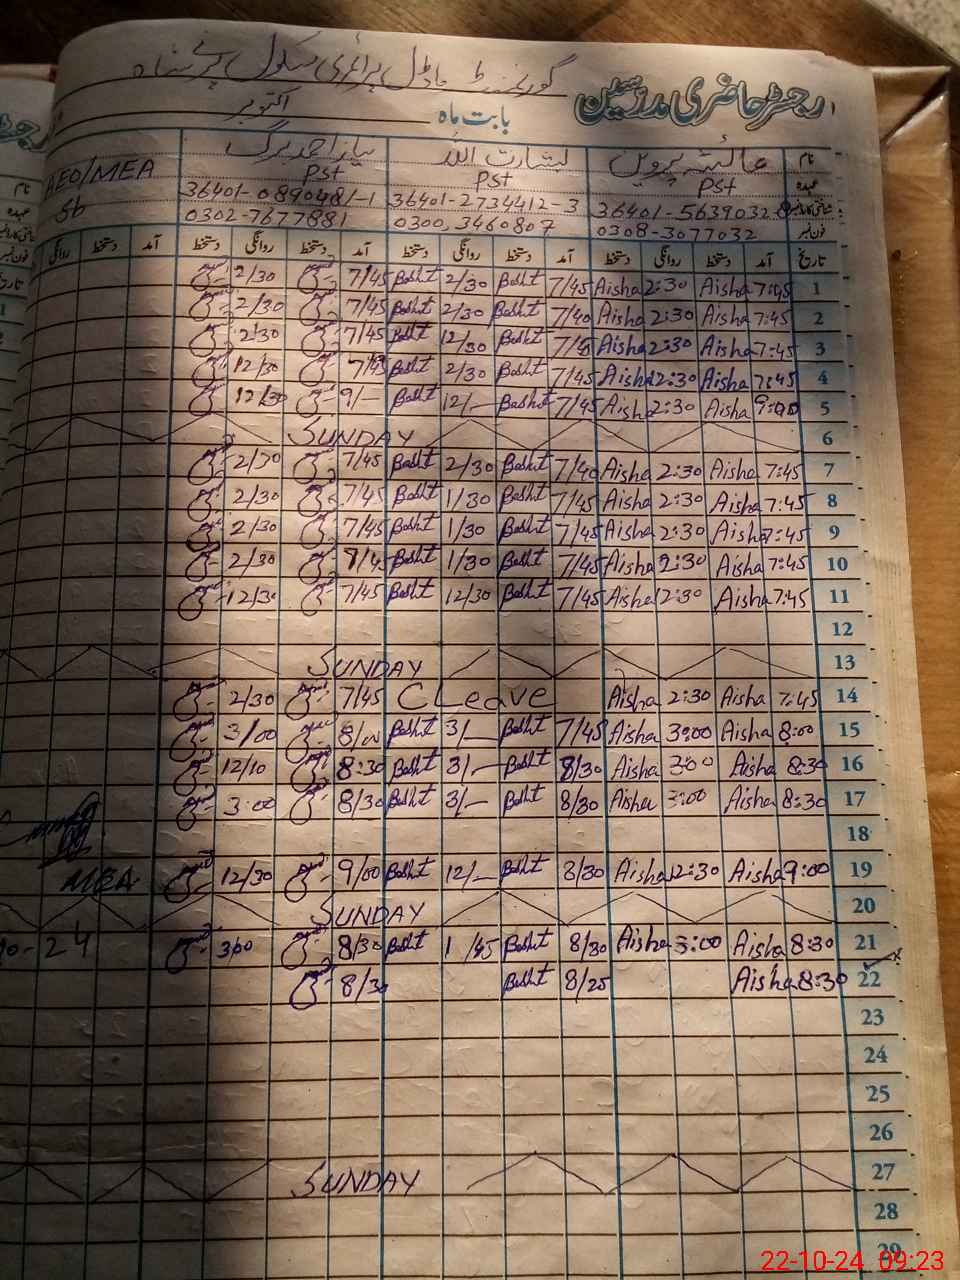 رجسٹر حاضری مدرسین گورنمنٹ ماڈل پرائمری سکول
بابت ماہ اکتوبر
نام عائشہ پروین بشارت اللہ نیاز احمد AEO/MEA
عہدہ PST PST PST Sb
36401-5639032-8 36401-2734412-3 36401-0890481-1
فون نمبر 0308-3077032 0300,3460807 0302-7677881
تاریخ آمد دستخط روانگی دستخط آمد دستخط روانگی دستخط آمد دستخط روانگی دستخط آمد دستخط روانگی
1 7:45 Aisha 2:30 Aisha 7/45 Basht 2/30 Basht 7/45 2/30
2 7:45 Aisha 2:30 Aisha 7/40 Basht 2/30 Basht 7/45 2/30
3 7:45 Aisha 2:30 Aisha 7/45 Basht 12/30 Basht 7/45 2:30
4 7:45 Aisha 12:30 Aisha 7/45 Basht 2/30 Basht 7/45 12/30
5 9:00 Aisha 12:30 Aisha 7/45 Basht 12/— Basht 9/— 12/30
6 SUNDAY
7 7:45 Aisha 2:30 Aisha 7/40 Basht 2/30 Basht 7/45 2/30
8 7:45 Aisha 2:30 Aisha 7/45 Basht 1/30 Basht 7/45 2/30
9 7:45 Aisha 2:30 Aisha 7/45 Basht 1/30 Basht 7/45 2/30
10 7:45 Aisha 2:30 Aisha 7/45 Basht 1/30 Basht 7/45 2/30
11 7:45 Aisha 12:30 Aisha 7/45 Basht 12/30 Basht 7/45 12/30
12
13 SUNDAY
14 7:45 Aisha 2:30 Aisha C Leave 7/45 2/30
15 8:00 Aisha 3:00 Aisha 7/45 Basht 3/— Basht 8/00 3/00
16 8:30 Aisha 3:00 Aisha 8/30 Basht 3/— Basht 8:30 12/10
17 8:30 Aisha 3:00 Aisha 8/30 Basht 3/— Basht 8/30 3:00
18
19 9:00 Aisha 12:30 Aisha 8/30 Basht 12/— Basht 9/00 12/30 MEA
20 SUNDAY
21 8:30 Aisha 3:00 Aisha 8/30 Basht 1/45 Basht 8/30 300 10-24
22 8:30 Aisha 8/25 Basht 8/30
23
24
25
26
27 SUNDAY
28
29
22-10-24 09:23